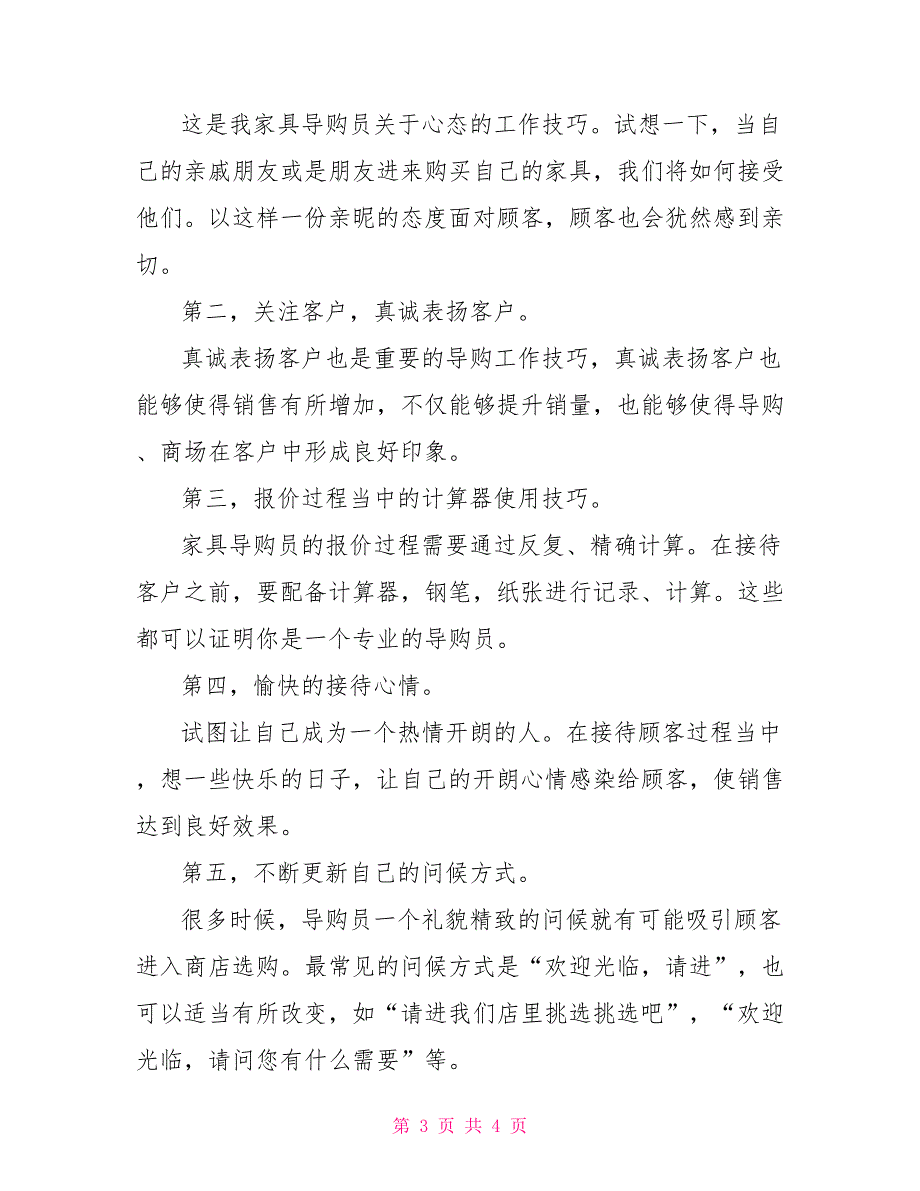 这是我家具导购员关于心态的工作技巧。试想一下，当自
己的亲戚朋友或是朋友进来购买自己的家具，我们将如何接受
他们。以这样一份亲昵的态度面对顾客，顾客也会犹然感到亲
切。
第二，关注客户，真诚表扬客户。
真诚表扬客户也是重要的导购工作技巧，真诚表扬客户也
能够使得销售有所增加，不仅能够提升销量，也能够使得导购
、商场在客户中形成良好印象。
第三，报价过程当中的计算器使用技巧。
家具导购员的报价过程需要通过反复、精确计算。在接待
客户之前，要配备计算器，钢笔，纸张进行记录、计算。这些
都可以证明你是一个专业的导购员。
第四，愉快的接待心情。
试图让自己成为一个热情开朗的人。在接待顾客过程当中
，想一些快乐的日子，让自己的开朗心情感染给顾客，使销售
达到良好效果。
第五，不断更新自己的问候方式。
很多时候，导购员一个礼貌精致的问候就有可能吸引顾客
进入商店选购。最常见的问候方式是“欢迎光临，请进”，也
可以适当有所改变，如“请进我们店里挑选挑选吧”，“欢迎
光临，请问您有什么需要”等。
第 3 页 共 4 页